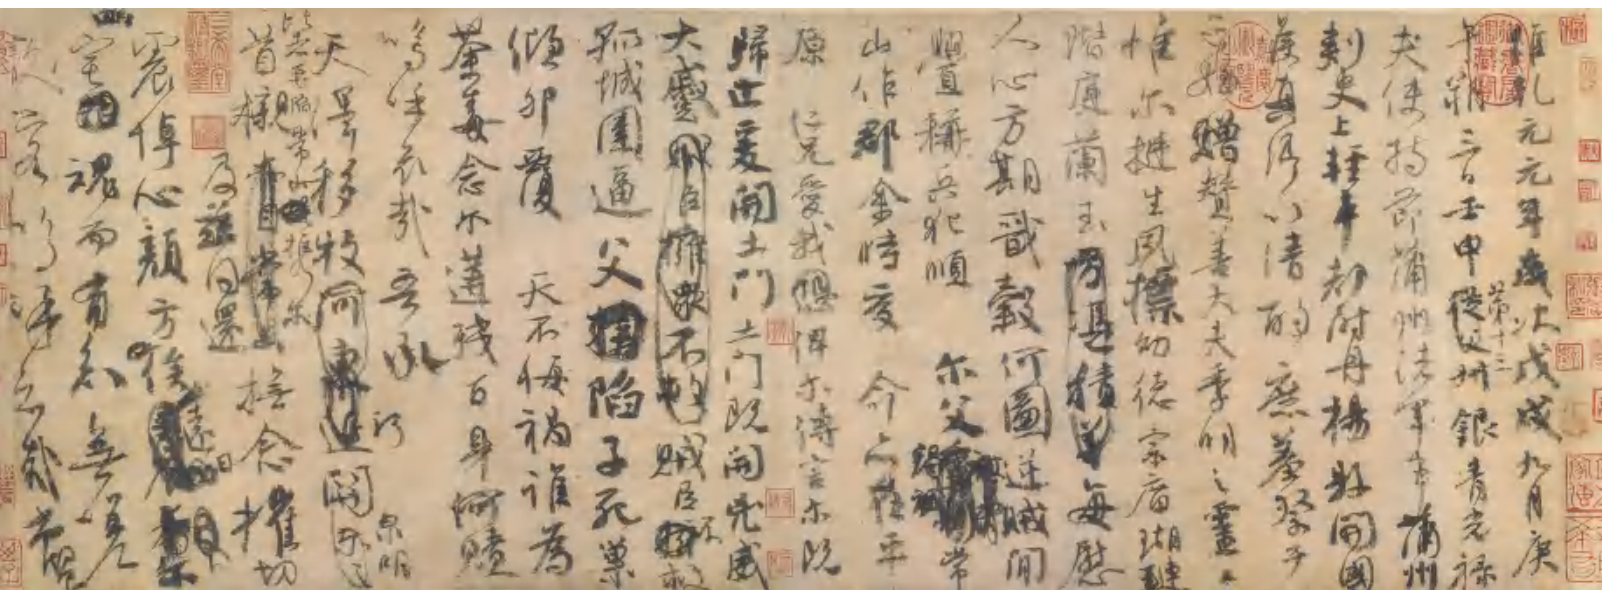 維乾元元年歲次戊戌九月庚
午朔三日壬申第十三從父銀青光祿
夫使持節蒲州諸軍事蒲州
刺史上輕車都尉丹楊縣開國
侯真卿以清酌庶羞祭于
亡姪贈贊善大夫季明之靈曰
惟爾挺生夙標幼德宗廟瑚璉
階庭蘭玉每慰
人心方期戩穀何圖逆賊間
釁稱兵犯順爾父常
山作郡余時受命亦在平
原仁兄愛我俾爾傳言爾既
歸止爰開土門土門既開兇威
大蹙賊臣不救
孤城圍逼父陷子死巢
傾卵覆天不悔禍誰為
荼毒念爾遘殘百身何贖
嗚呼哀哉吾承
天澤移牧河關泉明
比者再陷常山攜爾
首櫬及茲同還撫念摧切
震悼心顏方俟遠日
宅魂而有知無嗟
久客嗚呼哀哉尚饗